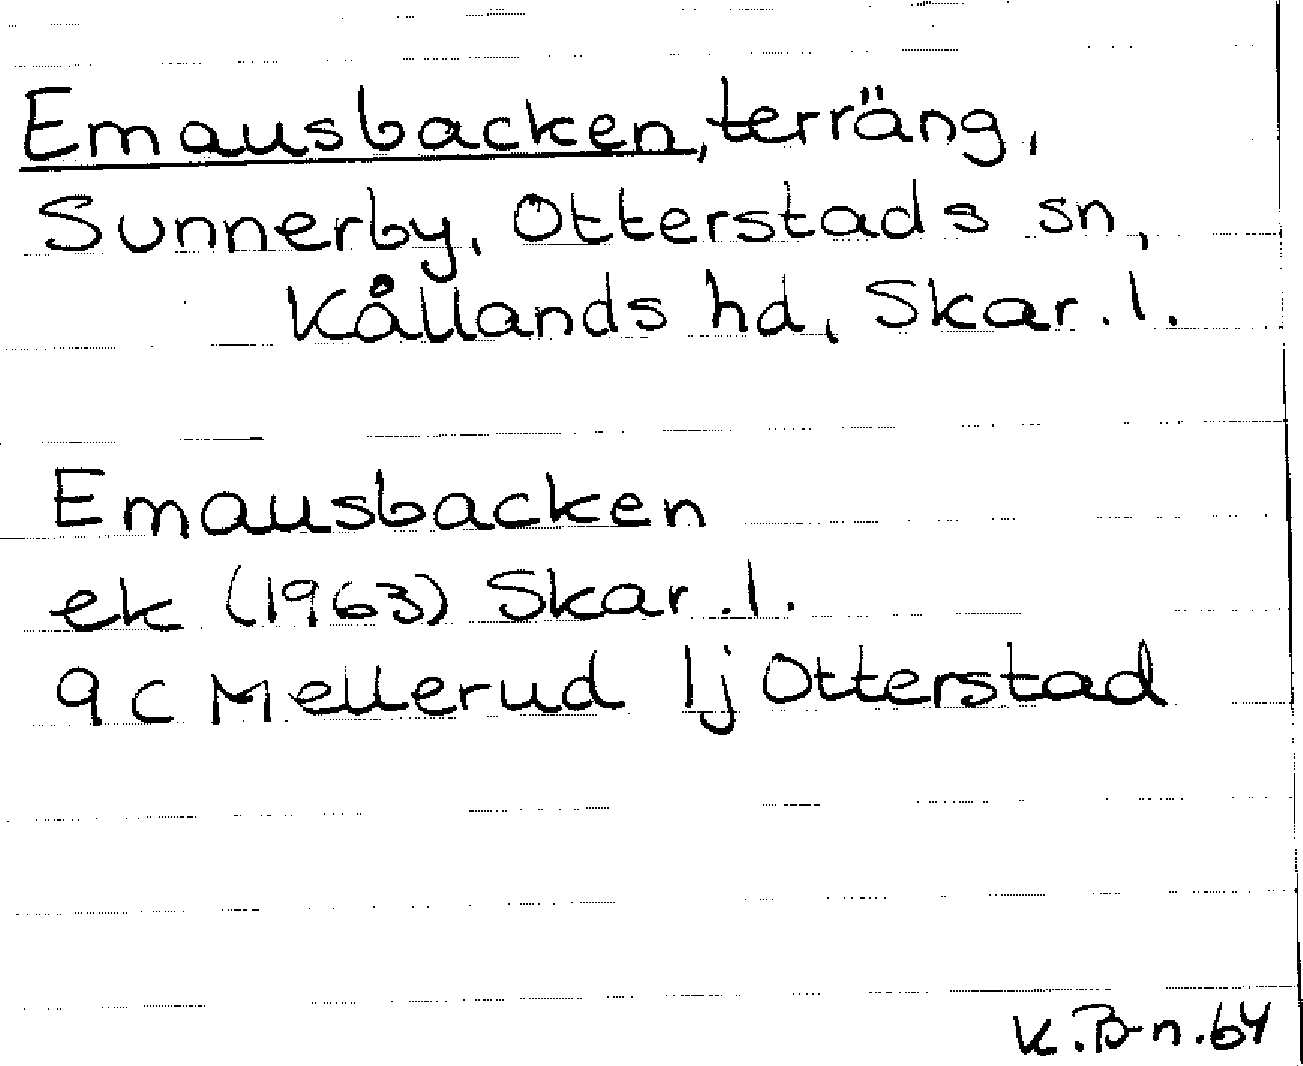 Emausbacken, terräng,
Sunnerby, Otterstads sn,
Kållands hd, Skar. l.
Emausbacken
ek (1963) Skar. l.
9C Mellerud 1j Otterstad
K.B-n.64